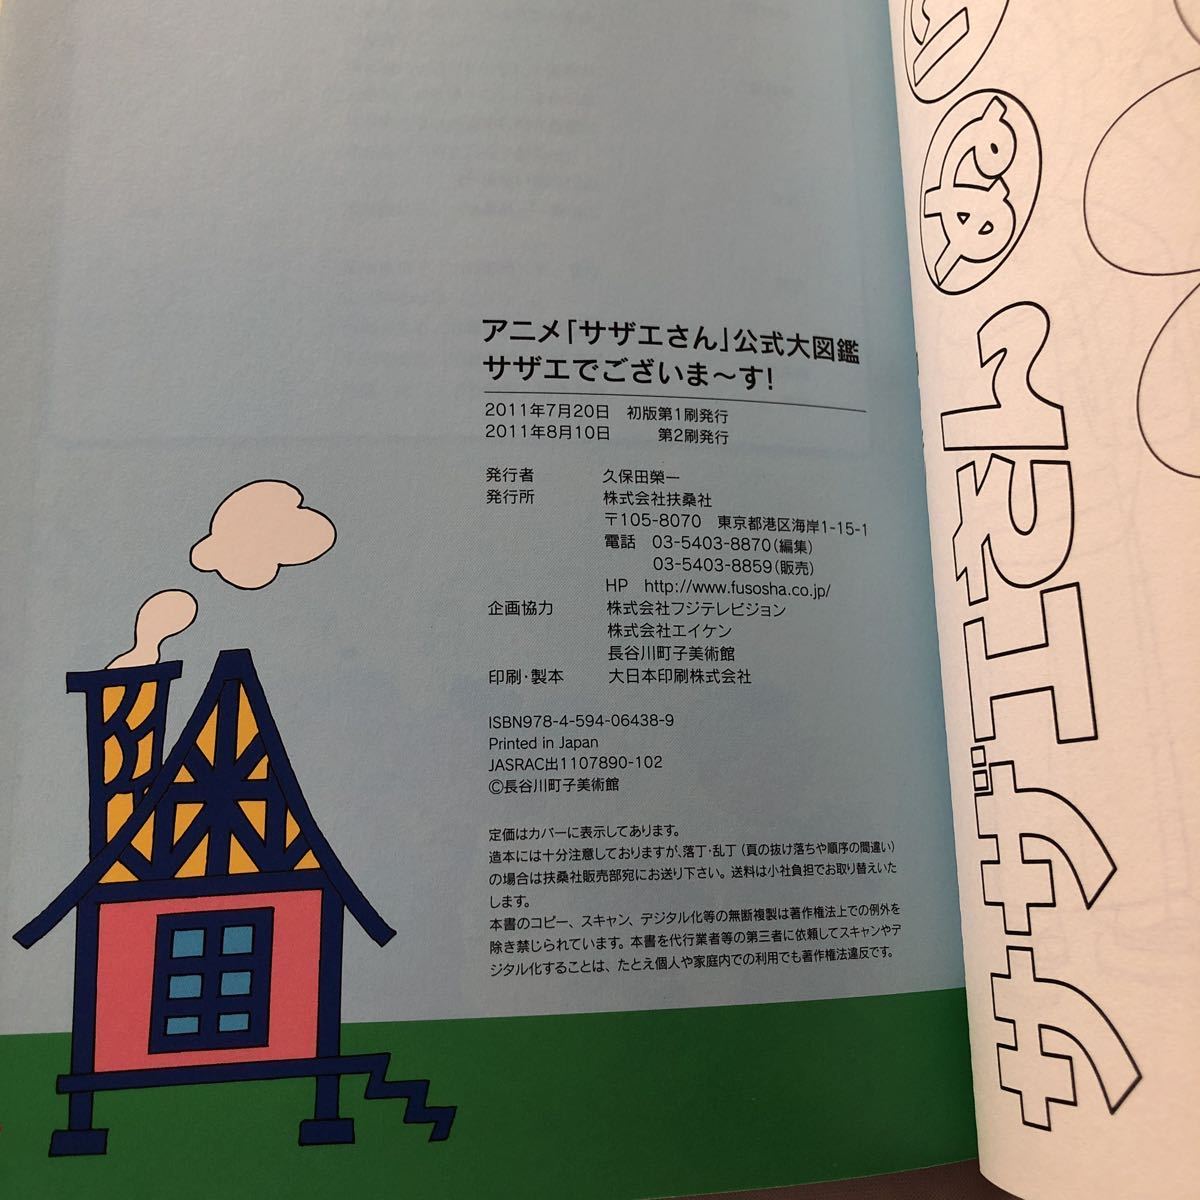 アニメ「サザエさん」公式大図鑑
サザエでございま〜す!
2011年7月20日 初版第1刷発行
2011年8月10日 第2刷発行
発行者 久保田榮一
発行所 株式会社扶桑社
〒105-8070 東京都港区海岸1-15-1
電話 03-5403-8870(編集)
03-5403-8859(販売)
HP http://www.fusosha.co.jp/
企画協力 株式会社フジテレビジョン
株式会社エイケン
長谷川町子美術館
印刷・製本 大日本印刷株式会社
ISBN978-4-594-06438-9
Printed in Japan
JASRAC出1107890-102
©長谷川町子美術館
定価はカバーに表示してあります。
造本には十分注意しておりますが、落丁・乱丁(頁の抜け落ちや順序の間違い)
の場合は扶桑社販売部宛にお送り下さい。送料は小社負担でお取り替えいた
します。
本書のコピー、スキャン、デジタル化等の無断複製は著作権法上での例外を
除き禁じられています。本書を代行業者等の第三者に依頼してスキャンやデ
ジタル化することは、たとえ個人や家庭内での利用でも著作権法違反です。
サザエさん